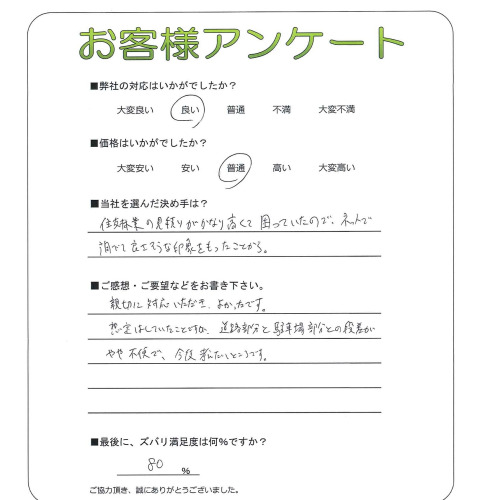 お客様アンケート
■弊社の対応はいかがでしたか？
大変良い 良い 普通 不満 大変不満
■価格はいかがでしたか？
大変安い 安い 普通 高い 大変高い
■当社を選んだ決め手は？
住友林業の見積りがかなり高くて困っていたので、ネットで
調べて良さそうな印象をもったことから。
■ご感想・ご要望などをお書き下さい。
親切に対応いただき、よかったです。
想定はしていたことですが、道路部分と駐車場部分との段差が
やや不便で、今後 したいところです。
■最後に、ズバリ満足度は何%ですか？
80 %
ご協力頂き、誠にありがとうございました。